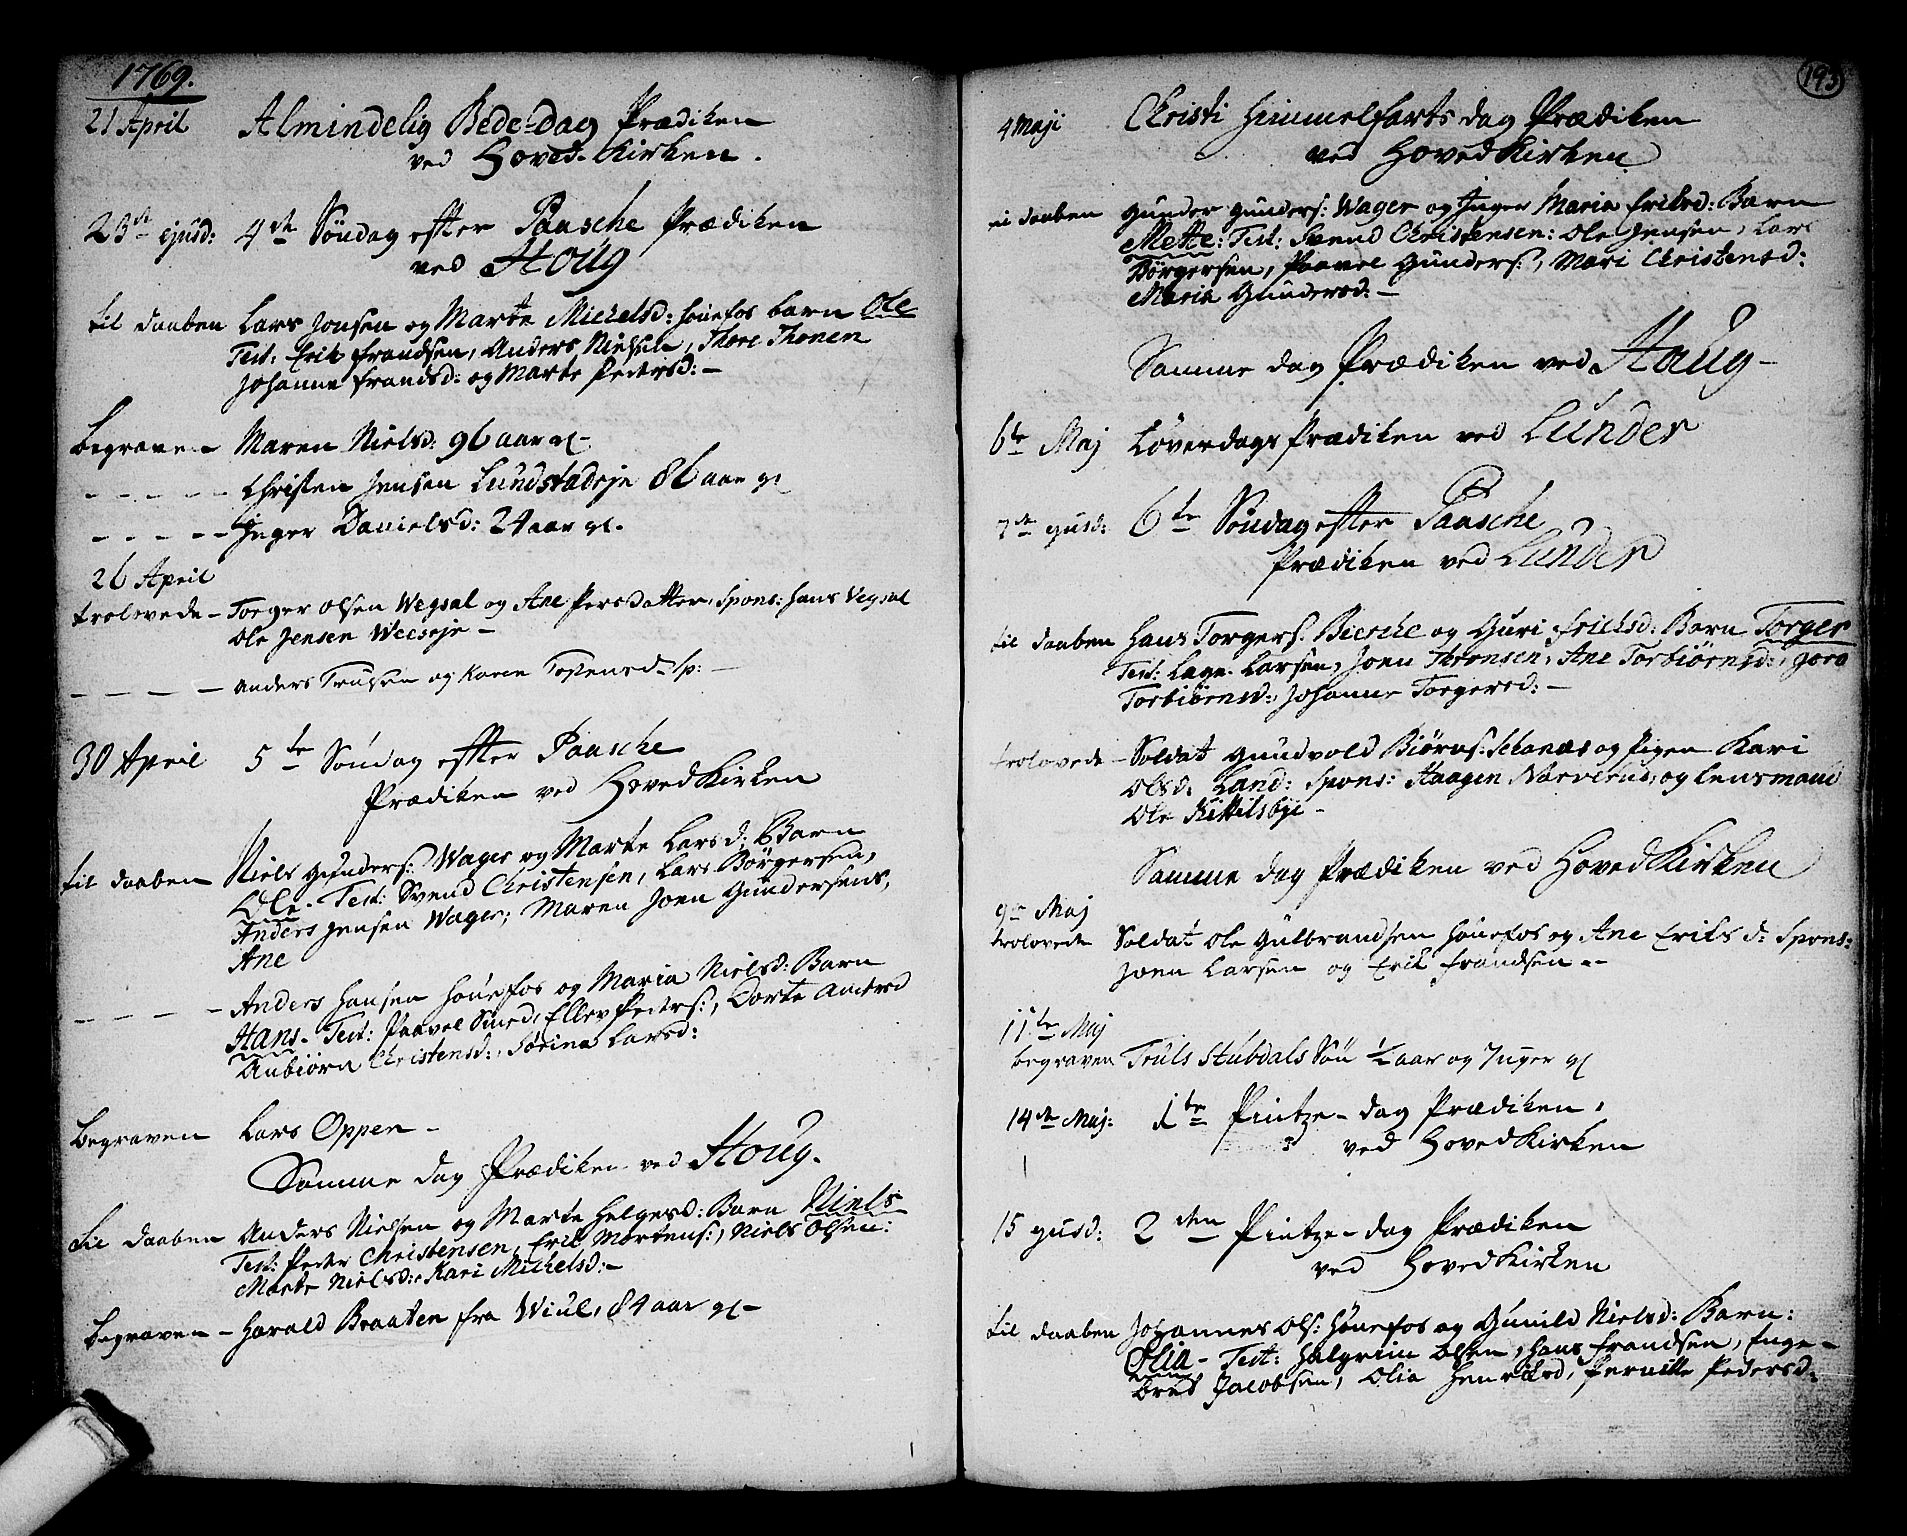 1769.
21 April Almindelig Bede-Dag Prædiken
ved Hoved-Kirken.
23de ejusd: 4de Søndag efter Paasche Prædiken
ved Houg
til daaben Lars Jonsen og Marte Michelsd: Hønefos barn Ole
Test: Erik Frandsen, Anders Nielsen, Thore Thonen
Johanne Frandsd: og Marte Pedersd: –
Begraven – Maren Nielsd: 96 aar gl –
– – – – – Christen Jensen Lundstadeje 86 aar gl
– – – – – Inger Danielsd: 24 aar gl.
26 April
trolovede – Torger Olsen Wegsal og Ane Persdatter, Spons: Hans Vegsal
Ole Jensen Weeseje –
– – – – Anders Trulsen og Karen Sp: –
30 April 5te Søndag efter Paasche
Prædiken ved Hovedkirken
til daaben Niels Gunders: Wager og Marte Larsd: Barn
Ole. Test: Svend Christensen, Lars Börgersen,
Anders Jensen Wager, Maren Joen Gundersens,
Ane
– – – – Anders Hansen Hönefos og Maria Nielsd: Barn
Hans. Test: Paavel Smed, Ellev Peders:, Dorte Andersd
Anbiörn Christensd:, Sörina Larsd:
Begraven Lars Oppen –
Samme dag Prædiken ved Houg.
til daaben Anders Nielsen og Marte Helgesd: Barn Niels
Test: Peder Christensen, Erik Mortens:, Niels Olsen:
Marte Nielsd:, Kari Michelsd: –
Begraven – Harald Braaten fra Wiul, 84 aar gl –
193
4 Maji Christi Himmelfarts dag Prædiken
ved Hovedkirken
til daaben Gunder Gunders: Wager og Inger Maria Eriksd: Barn
Mette: Test: Svend Christensen: Ole Jensen, Lars
Börgersen, Paavel Gunders:, Mari Christensd:
Maria Gundersd: –
Samme dag Prædiken ved Houg –
6te Maj Löverdags Prædiken ved Lunder
7de ejusd: 6te Søndag efter Paasche
Prædiken ved Lunder
til daaben Hans Torgers: Bierche og Guri Erichsd: Barn Torger
Test: Lage Larsen, Joen Thronsen, Ane Torbiörnsd:, Goro
Torbiörnsd:, Johanne Torgersd: –
trolovede – Soldat Gundvold Biörns: Schanæs og Pigen Kari
Olsd: Land: Spons: Haagen Narverud, og Lensmand
Ole Kittilsbye –
Samme dag Prædiken ved Hovedkirken
9de Maj
trolovede Soldat Ole Gulbrandsen Hönefos og Ane Eriks d: Spons:
Joen Larsen og Erik Frandsen –
11te Maj
begraven Truls Stubdals Søn ½ aar og 7 uger gl
14de Maj: 1te Pintze-dag Prædiken,
ved Hovedkirken
15 ejusd: 2den Pintze-dag Prædiken
ved Hovedkirken
til daaben Johannes Ols: Hönefos og Gunild Nielsd: Barn:
Olia – Test: Halgrim Olsen, Hans Frandsen, Enge-
bret Jacobsen, Olia Henriksd, Pernille Pedersd: